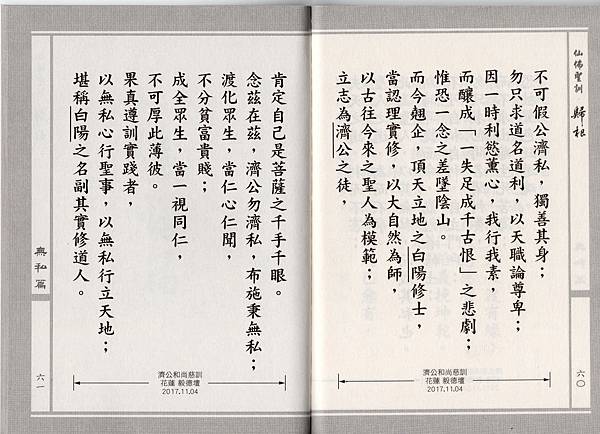 仙佛聖訓 歸根
不可假公濟私，獨善其身；
勿只求道名道利，以天職論尊卑；
因一時利慾薰心，我行我素，
而釀成「一失足成千古恨」之悲劇；
惟恐一念之差墜陰山。
而今翹企，頂天立地之白陽修士，
當認理實修，以大自然為師，
以古往今來之聖人為模範；
立志為濟公之徒，
濟公和尚慈訓
花蓮 毅德壇
2017.11.04
六〇
肯定自己是菩薩之千手千眼。
念茲在茲，濟公勿濟私，布施秉無私；
渡化眾生，當仁心仁聞，
不分貧富貴賤；
成全眾生，當一視同仁，
不可厚此薄彼。
果真遵訓實踐者，
以無私心行聖事，以無私行立天地；
堪稱白陽之名副其實修道人。
濟公和尚慈訓
花蓮 毅德壇
2017.11.04
無私篇
六一